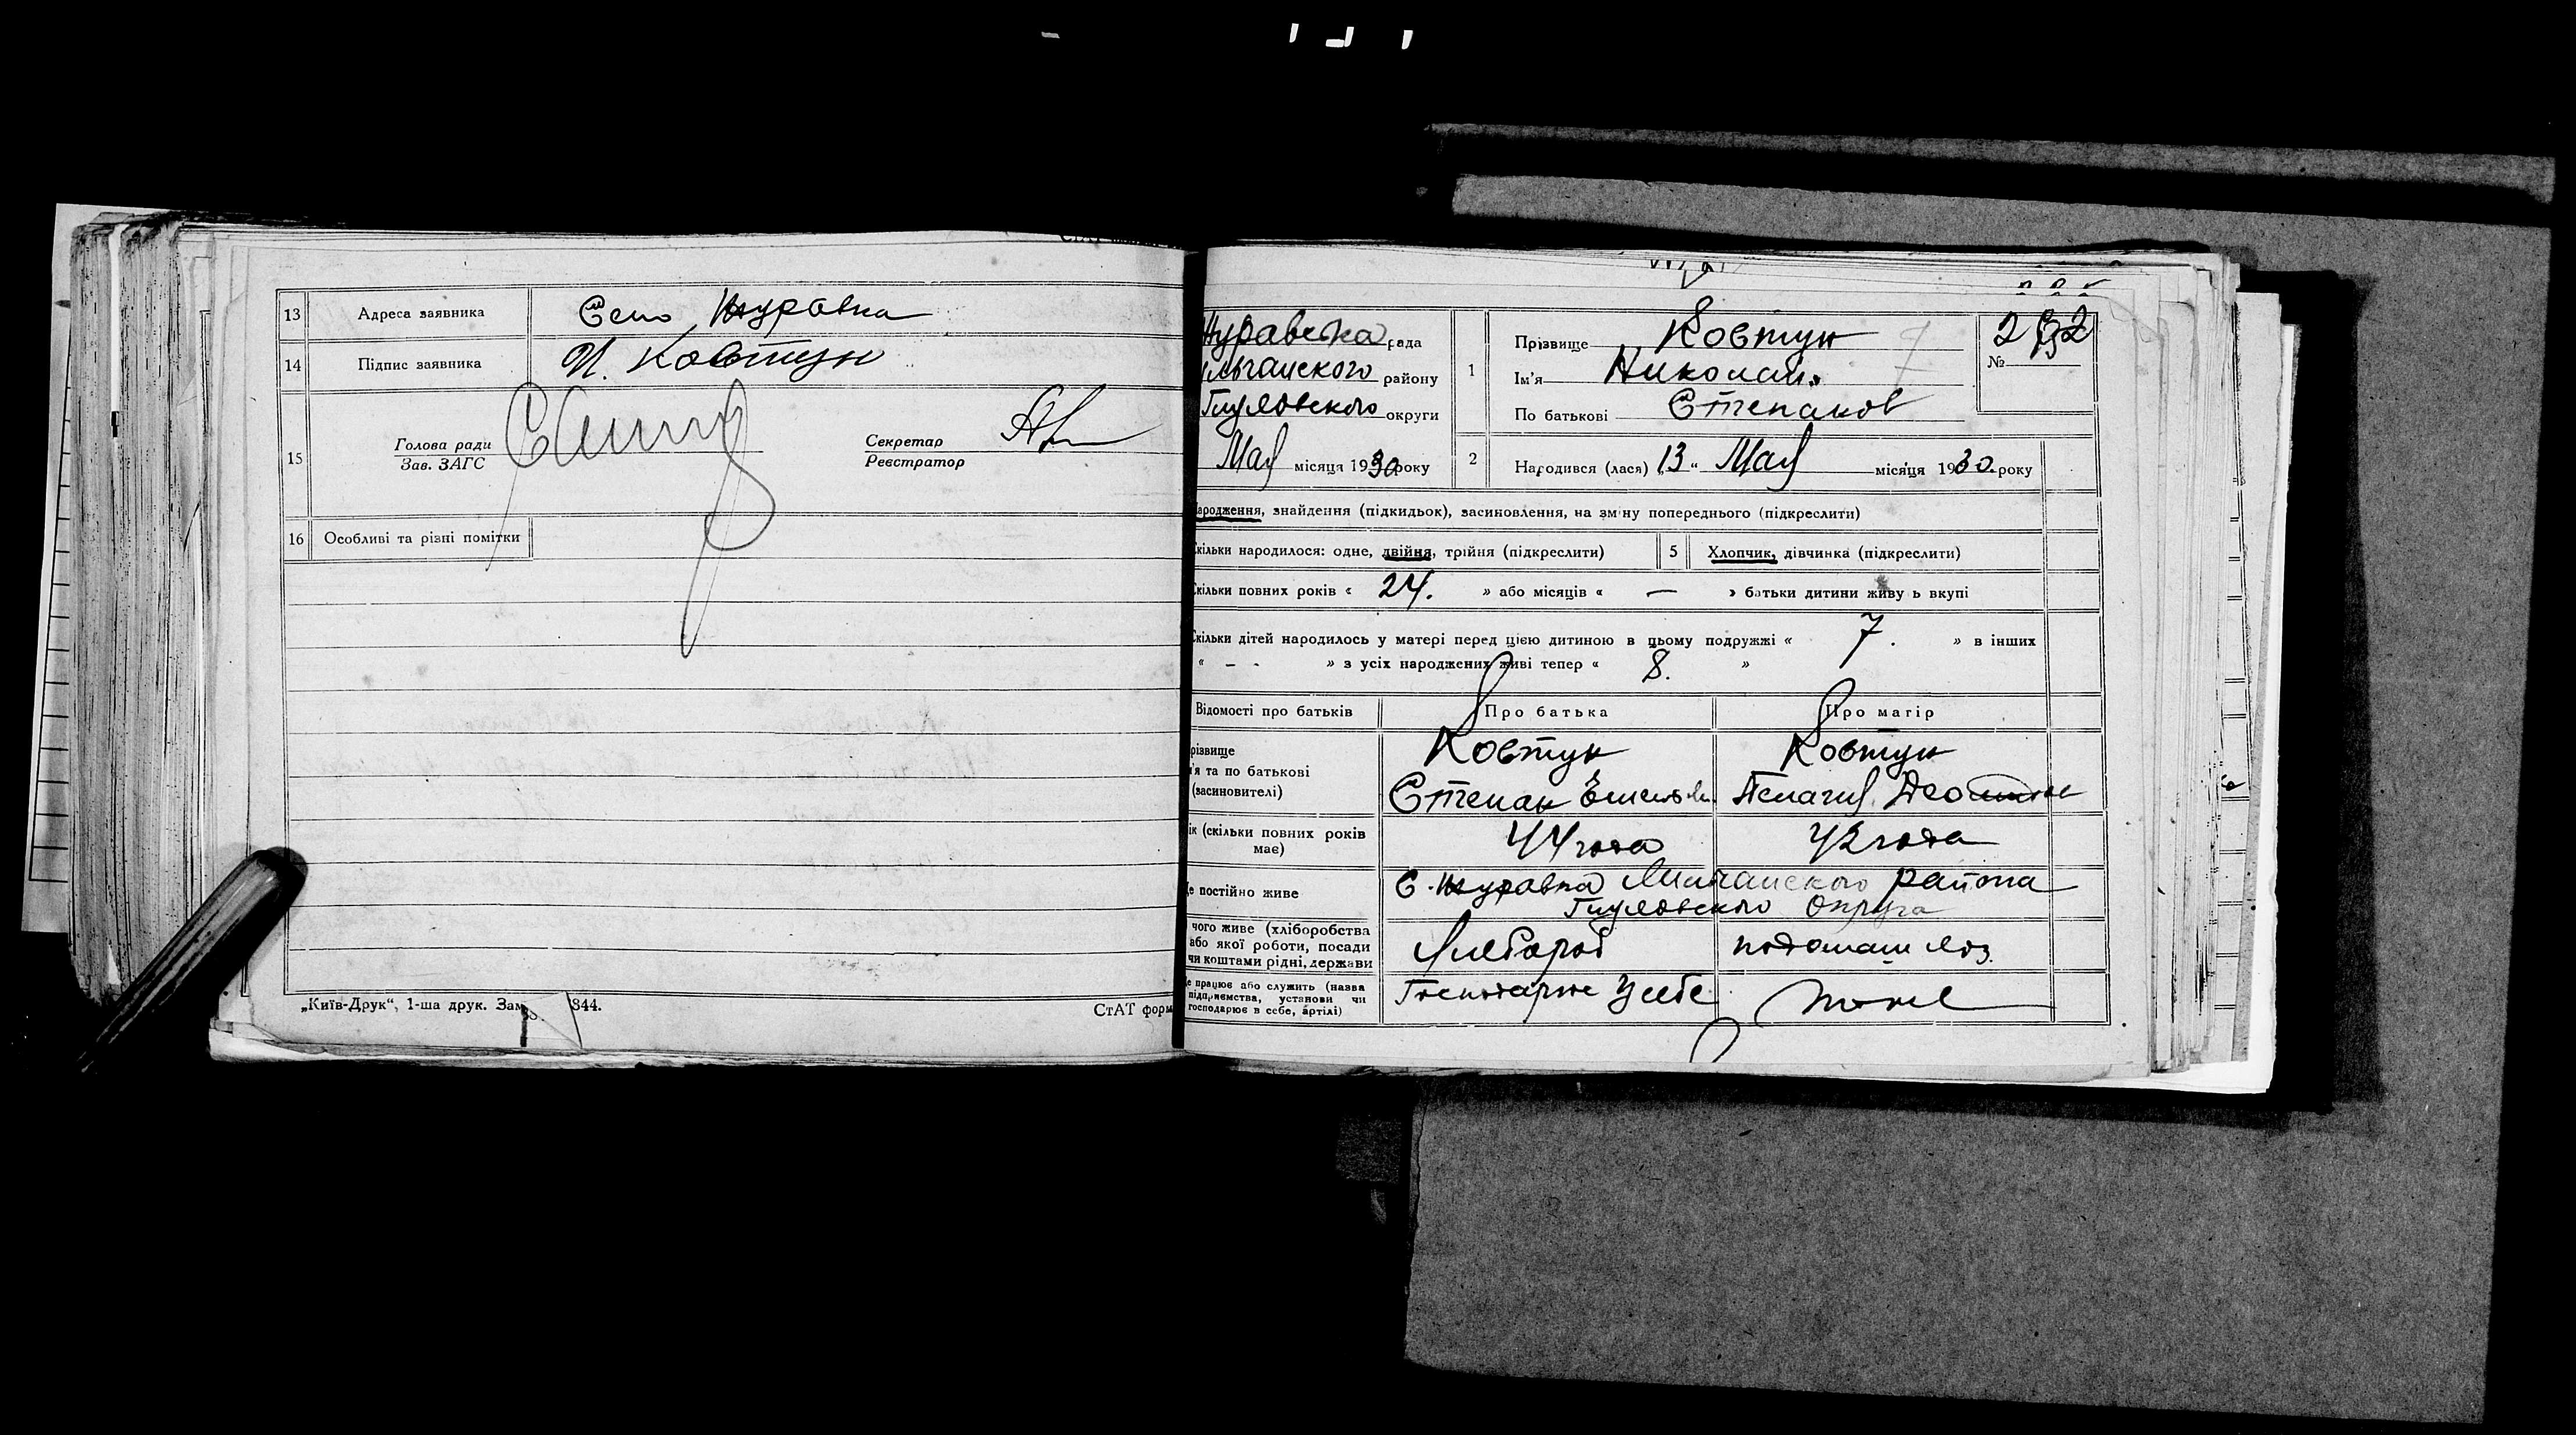 13 Адреса заявника Село Журавка
14 Підпис заявника И. Ковтун
15 Голова ради
Зав. ЗАГС
Секретар
Реєстратор
16 Особливі та різні помітки
„Київ-Друк“, 1-ша друк. Зам. 844.
СтАТ форм
Журавська рада
району
округи
Мая місяця 1930 року
1 Прізвище Ковтун
Ім’я Николай
По батькові Степанов
232
№
2 Народився (лася) „13“ Мая місяця 1930 року
ародження, знайдення (підкидьок), засиновлення, на зміну попереднього (підкреслити)
кільки народилося: одне, двійня, трійня (підкреслити) 5 Хлопчик, дівчинка (підкреслити)
кільки повних років « 24. » або місяців « — » батьки дитини живу ь вкупі
кільки дітей народилось у матері перед цією дитиною в цьому подружжі « 7. » в інших
« - - » з усіх народжених живі тепер « 8. »
Відомості про батьків Про батька Про матір
різвище
’я та по батькові
(засиновителі)
Ковтун
Степан
Ковтун
Пелагия
ік (скільки повних років
має)
44 года 42 года
е постійно живе С. Журавка района
Округа
чого живе (хліборобства
або якої роботи, посади
чи коштами рідні, держави
Хлебороб
е працює або служить (назва
підприємства, установи чи
господарює в себе, артілі)
у себе тоже